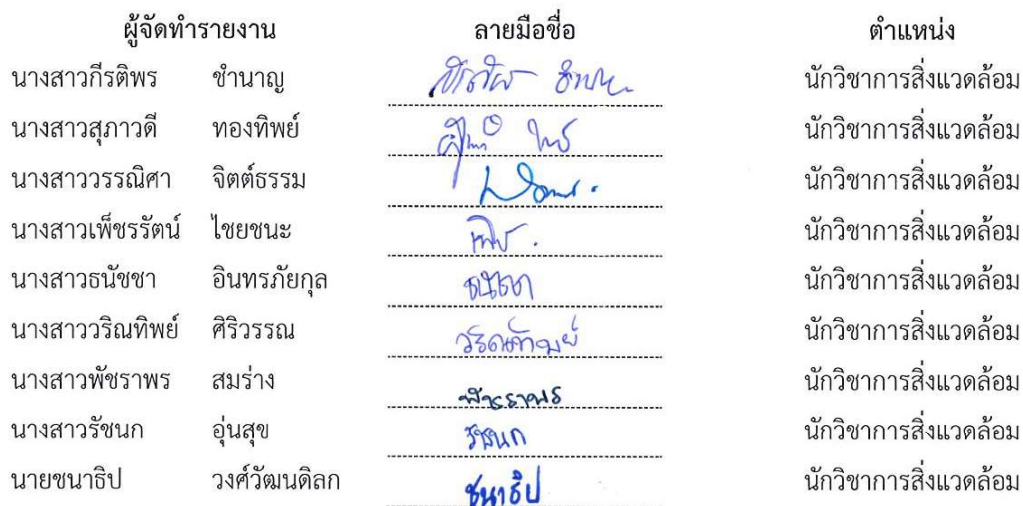 ผู้จัดทำรายงาน ลายมือชื่อ ตำแหน่ง
นางสาวกีรติพร ชำนาญ นักวิชาการสิ่งแวดล้อม
นางสาวสุภาวดี ทองทิพย์ นักวิชาการสิ่งแวดล้อม
นางสาววรรณิศา จิตต์ธรรม นักวิชาการสิ่งแวดล้อม
นางสาวเพ็ชรรัตน์ ไชยชนะ นักวิชาการสิ่งแวดล้อม
นางสาวธนัชชา อินทรภัยกุล นักวิชาการสิ่งแวดล้อม
นางสาววริณทิพย์ ศิริวรรณ นักวิชาการสิ่งแวดล้อม
นางสาวพัชราพร สมร่าง พัชราพร นักวิชาการสิ่งแวดล้อม
นางสาวรัชนก อุ่นสุข รัชนก นักวิชาการสิ่งแวดล้อม
นายชนาธิป วงศ์วัฒนดิลก ชนาธิป นักวิชาการสิ่งแวดล้อม